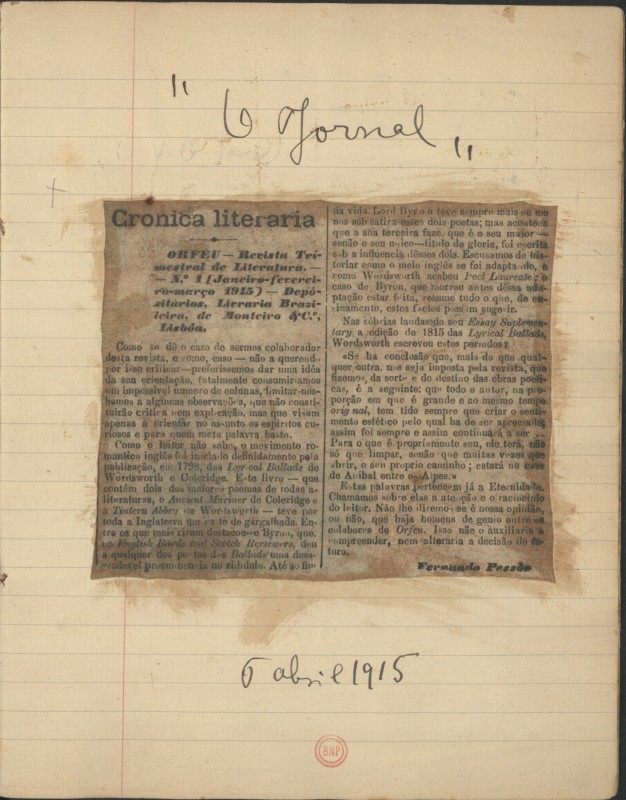 "O Jornal"
Cronica literaria
ORFEU — Revista Tri-
mestral de Literatura. —
— N.º 1 (Janeiro-feverei-
ro-março 1915) — Depo-
sitários, Livraria Brazi-
leira, de Monteiro & C.ª,
Lisbôa.
Como se dê o caso de sermos colaborador
desta revista, e como, caso — não a querendo
por isso criticar — preferissemos dar uma idéa
da sua orientação, fatalmente consumiriamos
um impossivel numero de colunas, limitar-nos-
hemos a algumas observações, que não consti-
tuirão critica nem explicação, mas que visam
apenas a orientar no assunto os espiritos cu-
riosos e para quem meia palavra baste.
Como o leitor não sabe, o movimento ro-
mantico inglês foi iniciado definidamente pela
publicação, em 1798, das Lyrical Ballads de
Wordsworth e Coleridge. Este livro — que
contém dois dos maiores poemas de todas as
literaturas, o Ancient Mariner de Coleridge e
a Tintern Abbey de Wordsworth — teve por
toda a Inglaterra um exito de gargalhada. En-
tre os que mais riram destacou-se Byron, que,
no English Bards and Scotch Reviewers, deu
a qualquer dos poetas das Ballads uma desa-
gradavel preeminencia no ridiculo. Até ao fim
da vida Lord Byron teve sempre mais ou me-
nos sob satira esses dois poetas; mas acontece
que a sua terceira fase, que é o seu maior —
senão o seu unico — titulo de gloria, foi escrita
sob a influencia dêsses dois. Escusamos de his-
toriar como o meio inglês se foi adaptando, e
como Wordsworth acabou Poet Laureate; o
caso de Byron, que morreu antes dêssa ada-
ptação estar feita, resume tudo o que, de en-
sinamento, estes factos possam sugerir.
Nas sóbrias laudas do seu Essay Suplemen-
tary, a edição de 1815 das Lyrical Ballads,
Wordsworth escreveu estes periodos:
«Se ha conclusão que, mais do que qual-
quer outra, nos seja imposta pela revista, que
fizemos, da sorte e do destino das obras poeti-
cas, é a seguinte: que todo o autor, na pro-
porção em que é grande e ao mesmo tempo
original, tem tido sempre que criar o senti-
mento estético pelo qual ha de ser apreciado;
assim foi sempre e assim continuará a ser ...
Para o que é propriamente seu, ele terá, não
só que limpar, senão que muitas vezes que
abrir, o seu proprio caminho; estará no caso
de Anibal entre os Alpes.»
Estas palavras pertencem já a Eternidade.
Chamamos sobre elas a atenção e o raciocinio
do leitor. Não lhe diremos se é nossa opinião,
ou não, que haja homens de genio entre os
colabores de Orfeu. Isso não o auxiliaria a
compreender, nem alteraria a decisão do fu-
turo.
Fernando Pessôa
6 abril 1915
BNP